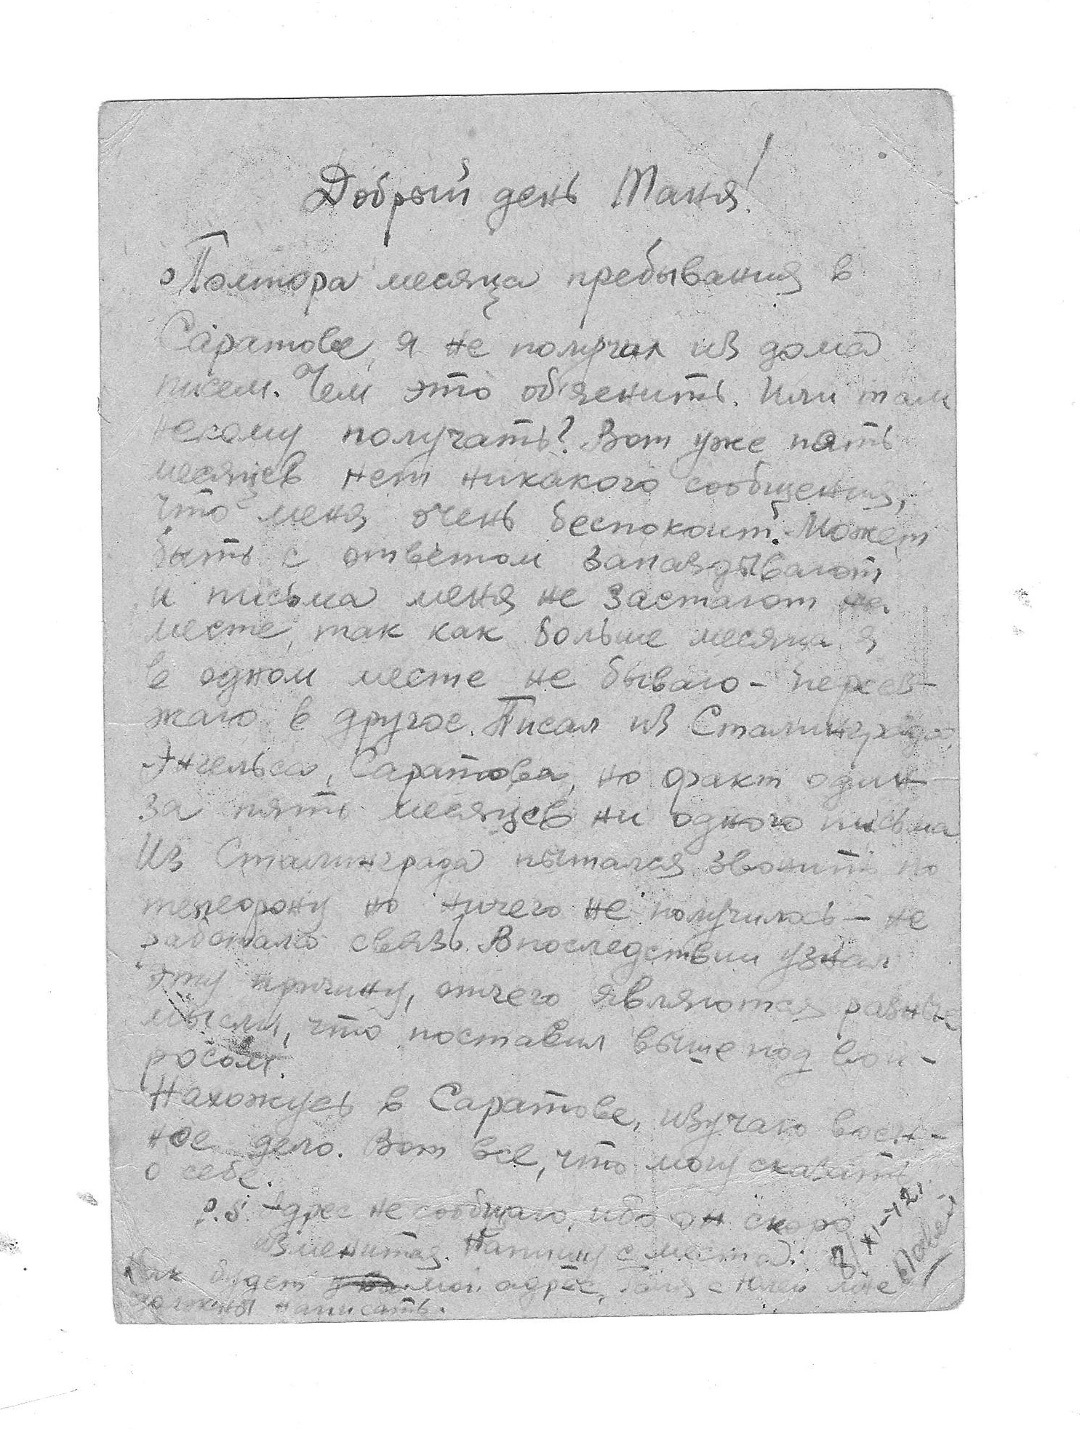 Добрый день Таня!
Полтора месяца пребывания в
Саратове, я не получал из дома
писем. Чем это обяснить. Или там
некому получать? Вот уже пять
месяцев нет никакого сообщения,
что меня очень беспокоит. Может
быть с ответом запаздывают
и письма меня не застают на
месте, так как больше месяца я
в одном месте не бываю – переез-
жаю в другое. Писал из Сталинграда
Энгельса, Саратова, но факт один
за пять месяцев ни одного письма
Из Сталинграда пытался звонить по
телефону но ничего не получилось – не
работала связь. Впоследствии узнал
эту причину, отчего являются разные
мысли, что поставил выше под воп-
росом.
Нахожусь в Саратове, изучаю воен-
ное дело. Вот все, что могу сказать
о себе.
P.S. Адрес не сообщаю, ибо он скоро
изменится. Напишу с места.
Как будет мой адрес, с мне
должны написать.
8/XI-42
Павел